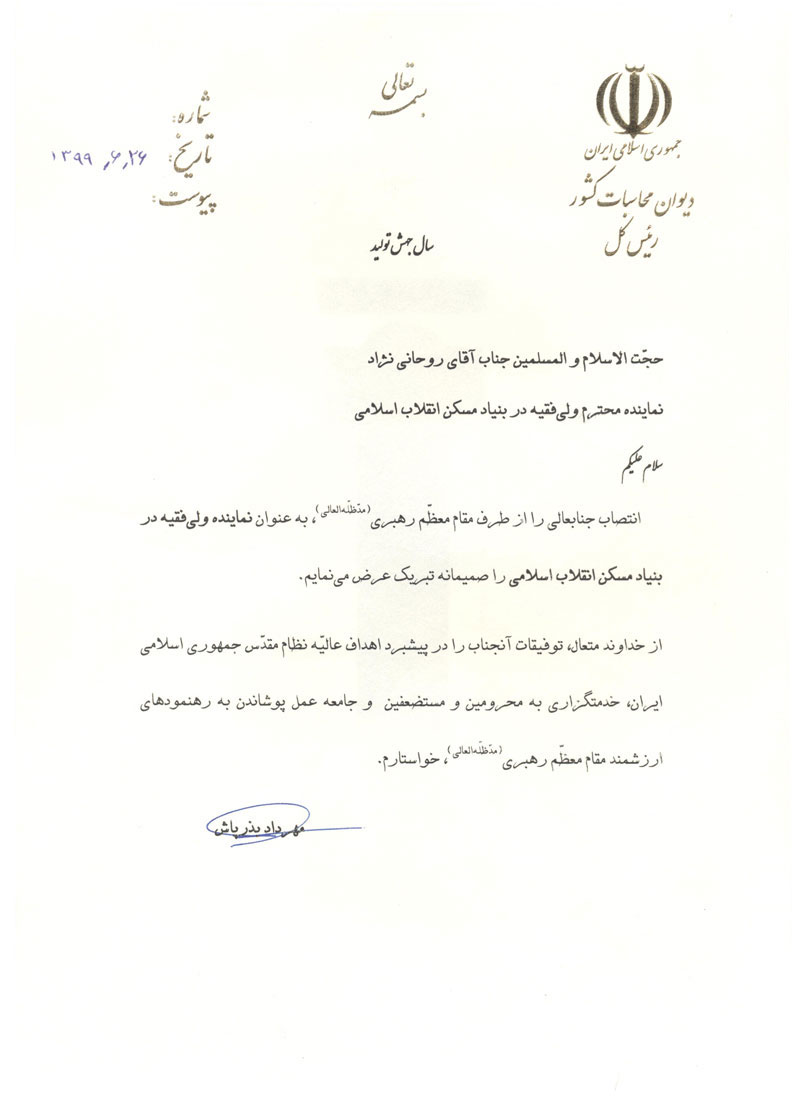 بسمه تعالی
جمهوری اسلامی ایران
دیوان محاسبات کشور
رئیس کل
شماره:
تاریخ: ۱۳۹۹,۶,۲۶
پیوست:
سال جهش تولید
حجّت الاسلام و المسلمین جناب آقای روحانی نژاد
نماینده محترم ولی‌فقیه در بنیاد مسکن انقلاب اسلامی
سلام علیکم
انتصاب جنابعالی را از طرف مقام معظّم رهبری(مدّظلّه‌العالی)، به عنوان نماینده ولی‌فقیه در
بنیاد مسکن انقلاب اسلامی را صمیمانه تبریک عرض می‌نمایم.
از خداوند متعال، توفیقات آنجناب را در پیشبرد اهداف عالیّه نظام مقدّس جمهوری اسلامی
ایران، خدمتگزاری به محرومین و مستضعفین و جامعه عمل پوشاندن به رهنمودهای
ارزشمند مقام معظّم رهبری(مدّظلّه‌العالی)، خواستارم.
مهرداد بذرپاش